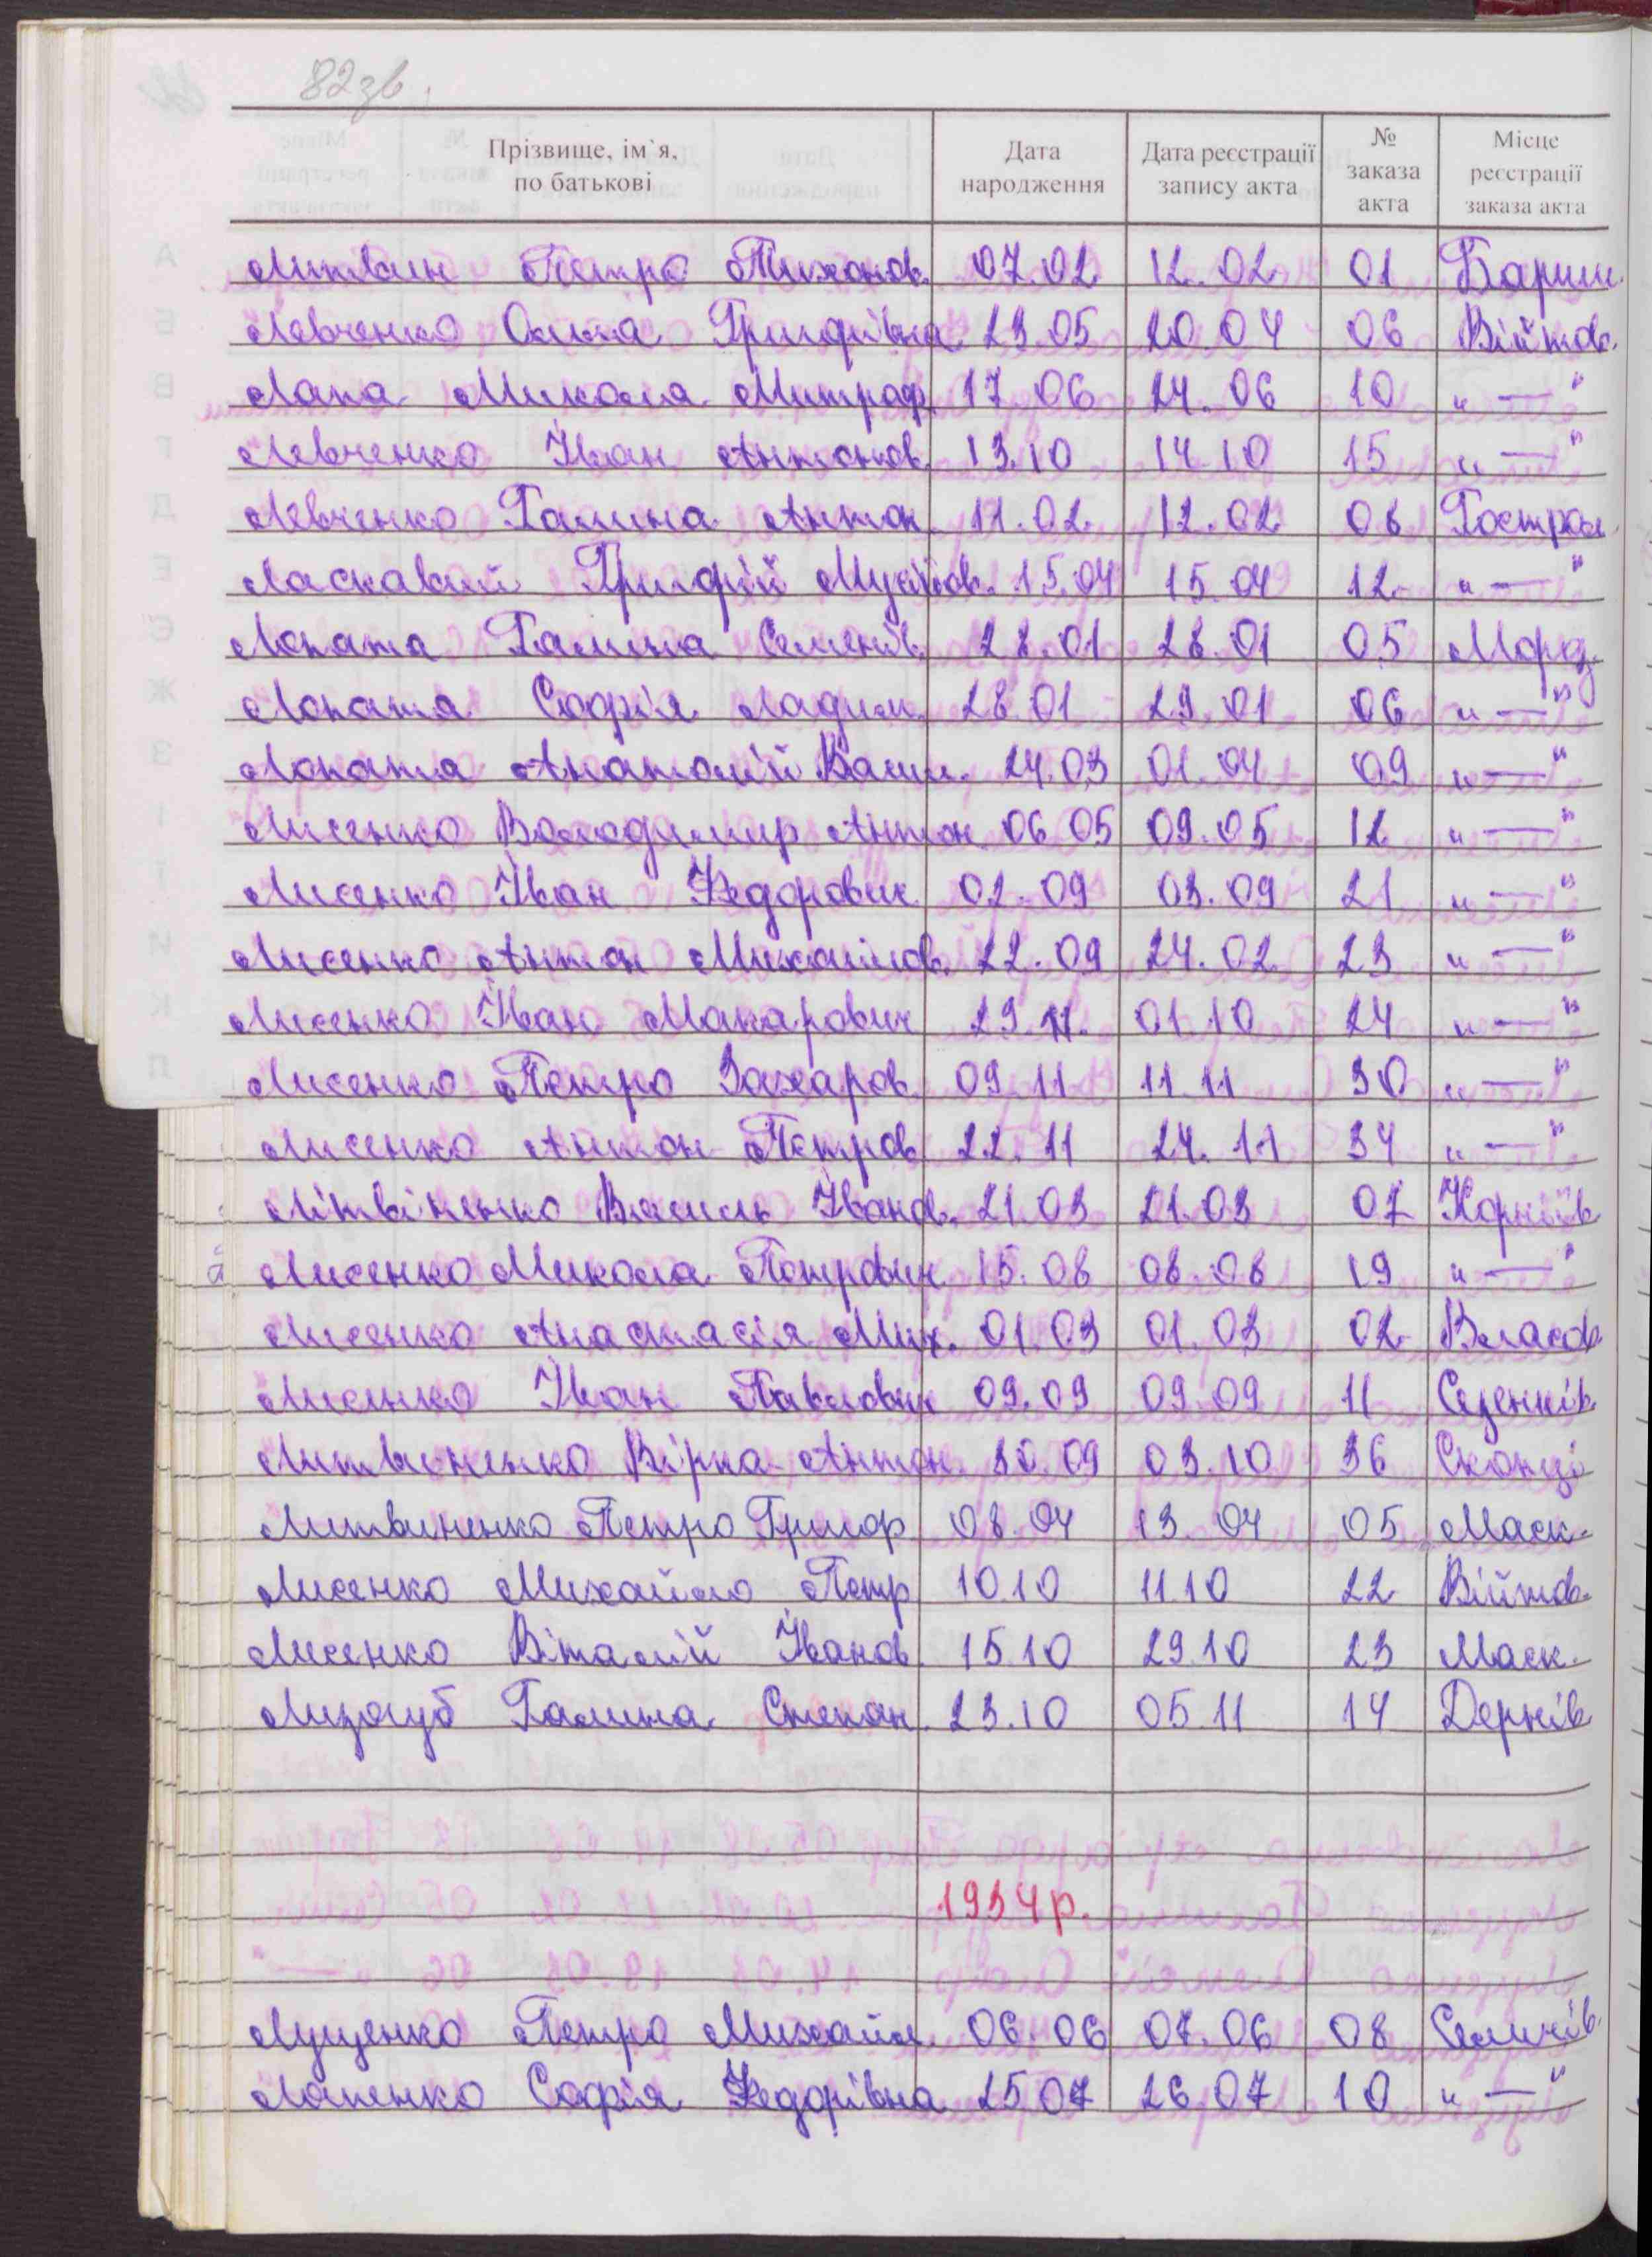 82зв.
Прізвище, ім`я, по батькові | Дата народження | Дата реєстрації запису акта | № заказа акта | Місце реєстрації заказа акта
Литвин Петро Тихонов. 07.02 12.02 01 Бариш.
Левченко Григорівна 23.05 20.04 06 Війтов.
Лапа Микола Митроф. 17.06 24.06 10 " — "
Левченко Іван Антонов. 13.10 14.10 15 " — "
Левченко Галина Антон. 11.02 12.02 08 Гострол.
Ласкавий Григорій Мусійов. 15.04 15.04 12 " — "
Лопата Галина Семенів. 28.01 28.01 05 Морд.
Лопата Софія Ладим. 28.01 29.01 06 " — "
Лопата Анатолій Васил. 24.03 01.04 09 " — "
Лисенко Володимир Антон. 06.05 09.05 12 " — "
Лисенко Іван Федорович 02.09 03.09 21 " — "
Лисенко Антон Михайлов. 22.09 24.02 23 " — "
Лисенко Іван Макарович 29.11. 01.10 24 " — "
Лисенко Петро Захаров. 09.11 11.11 30 " — "
Лисенко Антон Петров. 22.11 24.11 34 " — "
Літвіненко Василь Іванов. 21.03 21.03 07 Корніїв
Лисенко Микола Петрович 15.08 08.08 19 " — "
Лисенко Анастасія Мих. 01.03 01.03 02 Власов.
Лисенко Іван Павлович 09.09 09.09 11 Сезенків
Литвиненко Вірка Антон. 30.09 03.10 36 Скопці
Литвиненко Петро Григор 08.04 13.04 05 Маск.
Лисенко Михайло Петр 10.10 11.10 22 Війтов.
Лисенко Віталій Іванов. 15.10 29.10 23 Маск.
Лизогуб Галина Степан. 23.10 05.11 14 Дернів
1934р.
Лущенко Петро Михайл. 06.06 07.06 08 Селичів.
Лапенко Софія Федорівна 25.07 26.07 10 " — "